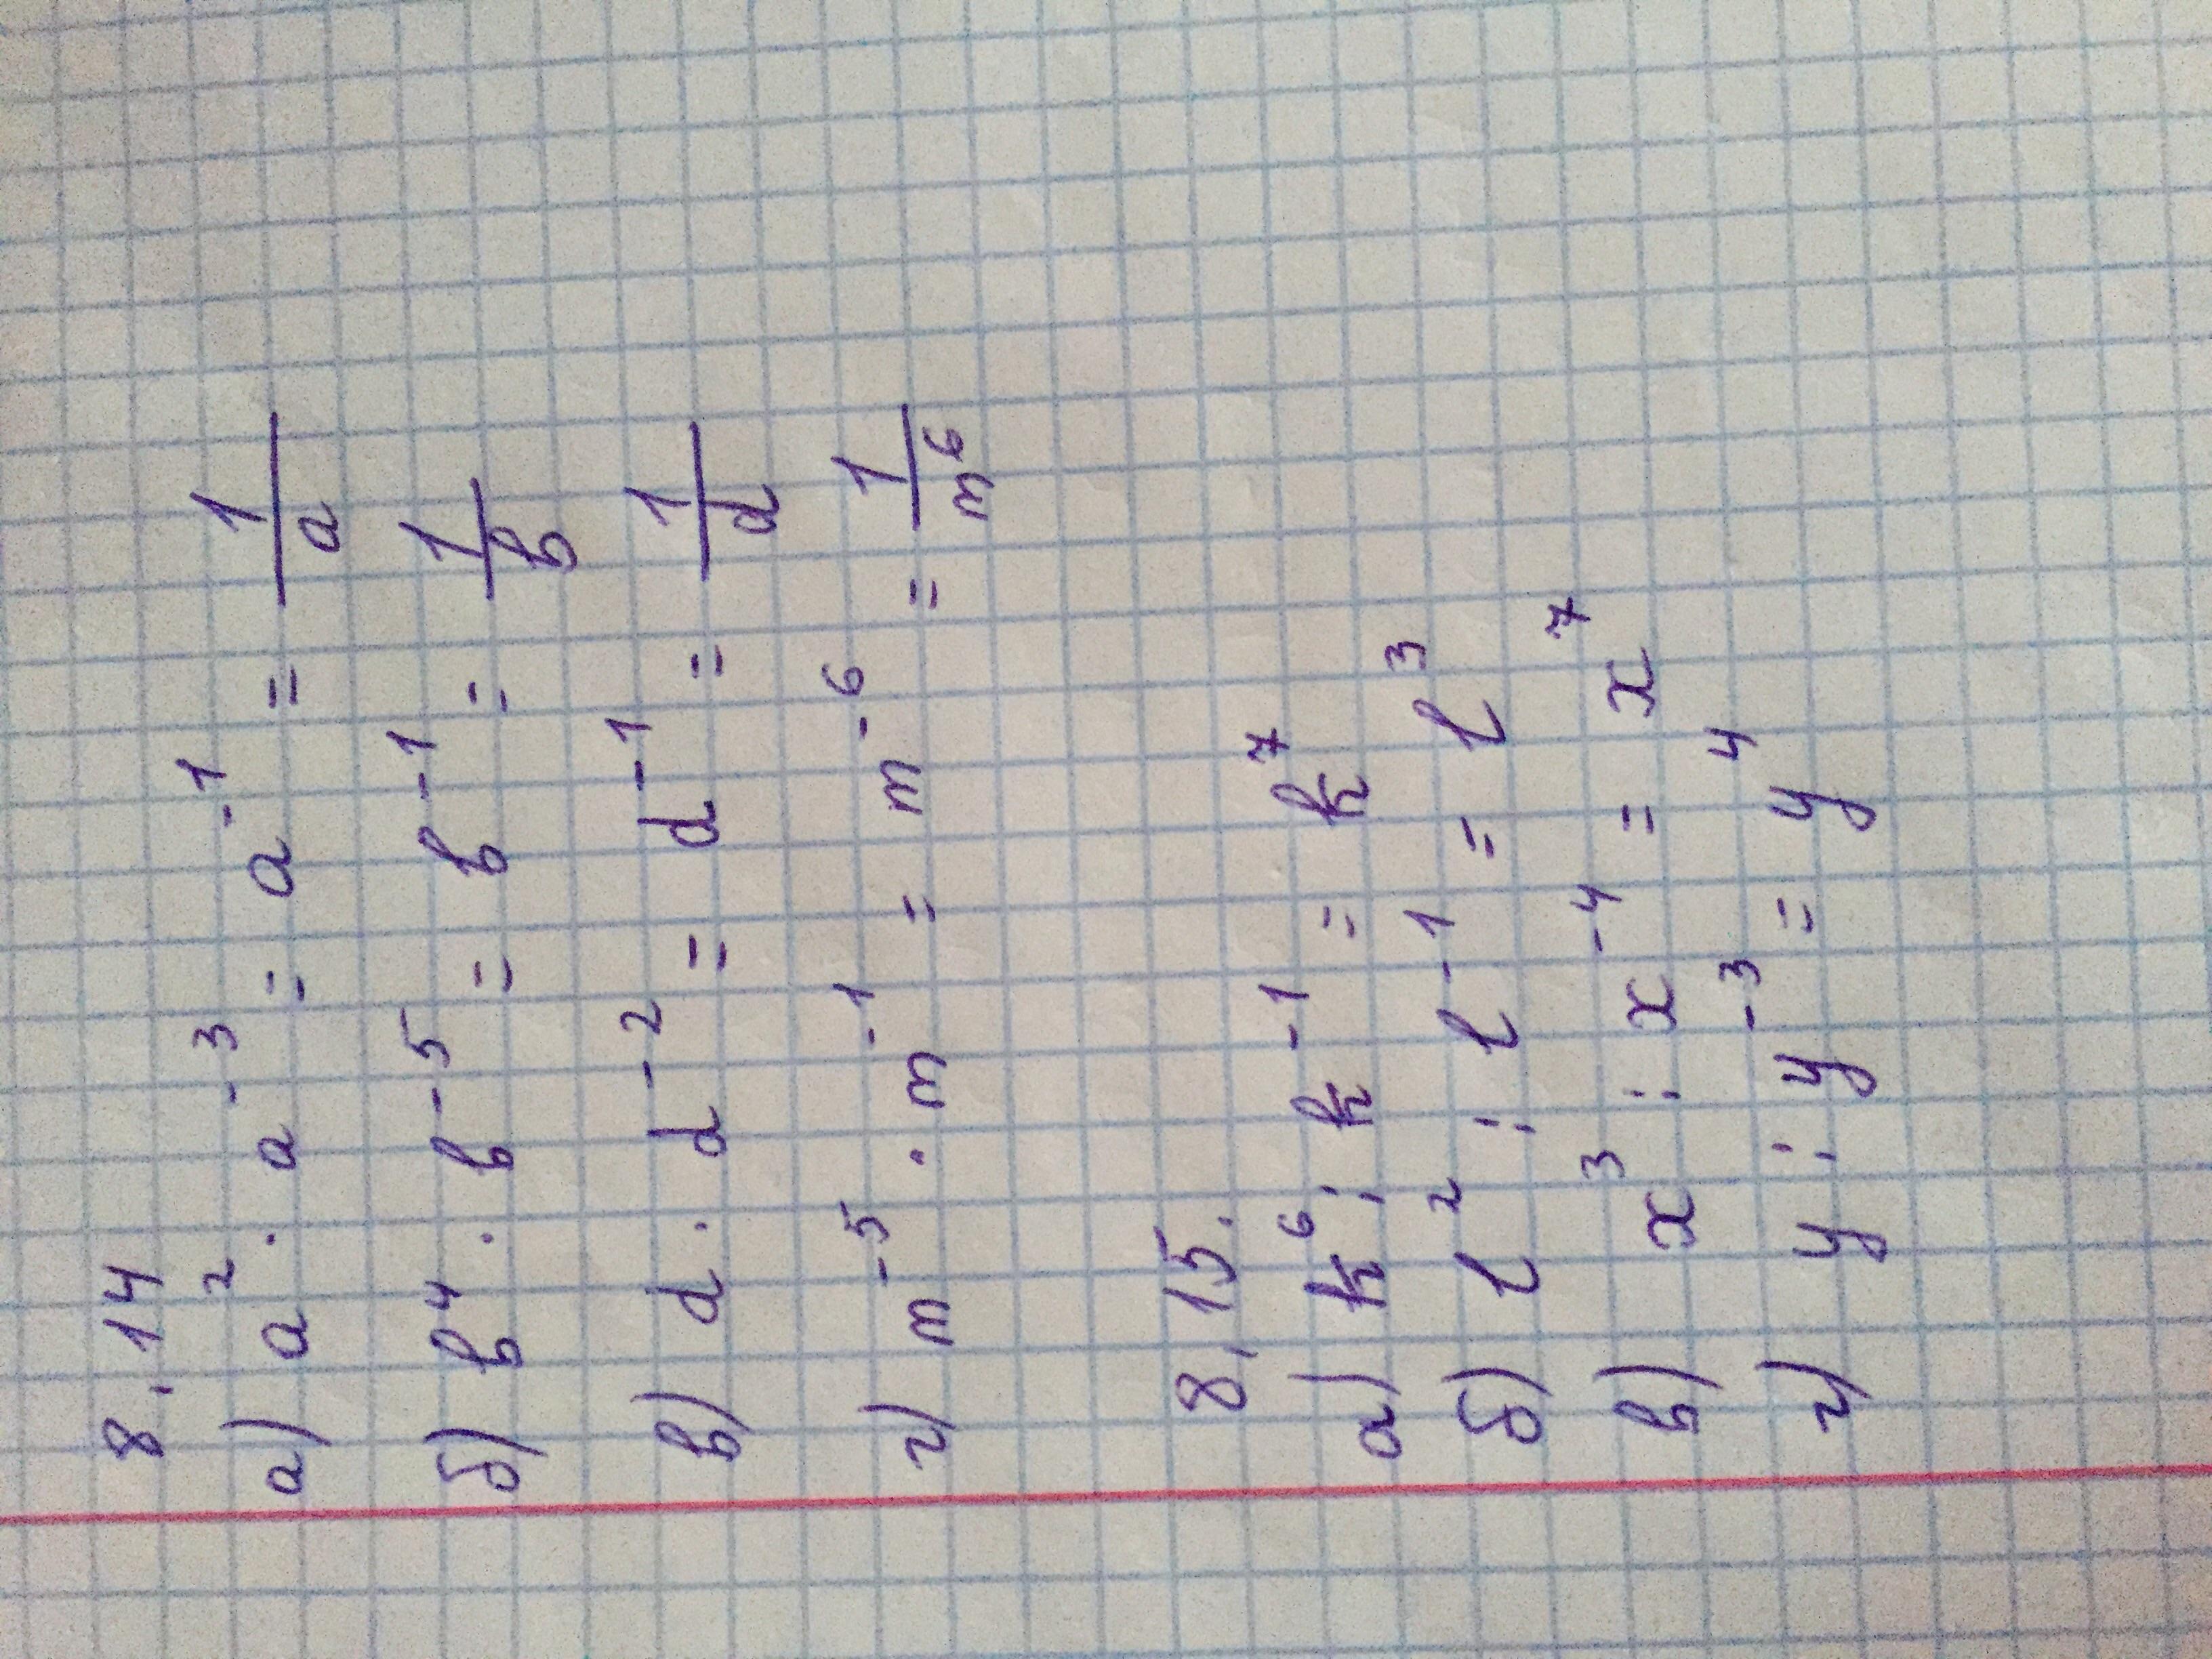 8.14
а) a² · a⁻³ = a⁻¹ = 1/a
б) b⁴ · b⁻⁵ = b⁻¹ = 1/b
в) d · d⁻² = d⁻¹ = 1/d
г) m⁻⁵ · m⁻¹ = m⁻⁶ = 1/m⁶
8.15.
а) k⁶ : k⁻¹ = k⁷
б) l² : l⁻¹ = l³
в) x³ : x⁻⁴ = x⁷
г) y : y⁻³ = y⁴